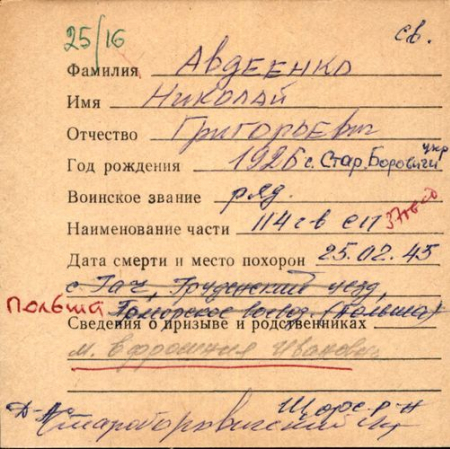 25/16 св.
Фамилия Авдеенко
Имя Николай
Отчество Григорьевич
Год рождения 1926 с. Стар. Боровичи укр
Воинское звание ряд.
Наименование части 114 гв сп 37 гв сд
Дата смерти и место похорон 25.02.45
с Гач, Груденский уезд,
Польша Поморское воевод. (Польша)
Сведения о призыве и родственниках
м. Ефросиния Ивановна
Щорс. р-н
Староборовичский